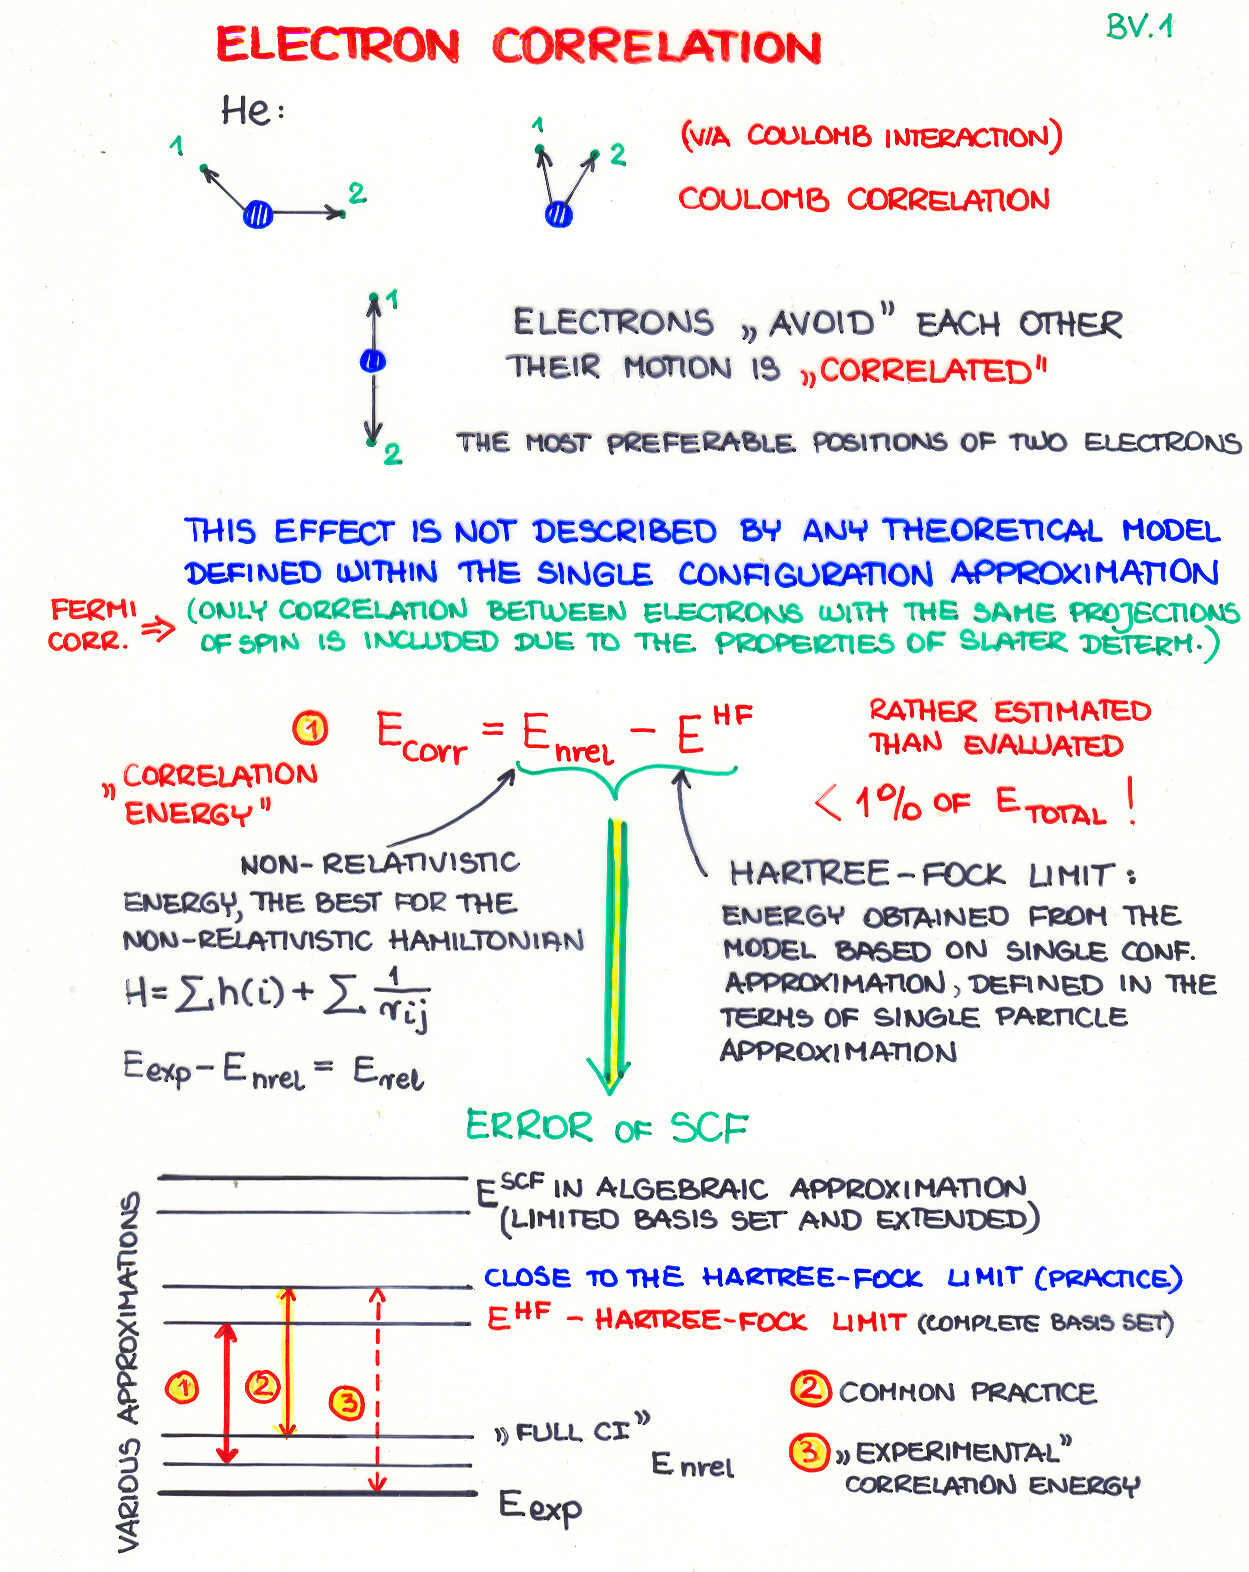 BV.1
ELECTRON CORRELATION
He:
1
2
1
2
(VIA COULOMB INTERACTION)
COULOMB CORRELATION
1
2
ELECTRONS „AVOID” EACH OTHER
THEIR MOTION IS „CORRELATED"
THE MOST PREFERABLE POSITIONS OF TWO ELECTRONS
THIS EFFECT IS NOT DESCRIBED BY ANY THEORETICAL MODEL
DEFINED WITHIN THE SINGLE CONFIGURATION APPROXIMATION
FERMI
CORR. ⇒
(ONLY CORRELATION BETWEEN ELECTRONS WITH THE SAME PROJECTIONS
OF SPIN IS INCLUDED DUE TO THE PROPERTIES OF SLATER DETERM.)
① E_corr = E_nrel - E^HF
RATHER ESTIMATED
THAN EVALUATED
< 1% OF E_TOTAL !
„CORRELATION
ENERGY"
NON-RELATIVISTIC
ENERGY, THE BEST FOR THE
NON-RELATIVISTIC HAMILTONIAN
H = ∑h(i) + ∑ 1/r_ij
E_exp - E_nrel = E_rel
HARTREE-FOCK LIMIT:
ENERGY OBTAINED FROM THE
MODEL BASED ON SINGLE CONF.
APPROXIMATION, DEFINED IN THE
TERMS OF SINGLE PARTICLE
APPROXIMATION
ERROR OF SCF
VARIOUS APPROXIMATIONS
E^SCF IN ALGEBRAIC APPROXIMATION
(LIMITED BASIS SET AND EXTENDED)
CLOSE TO THE HARTREE-FOCK LIMIT (PRACTICE)
E^HF - HARTREE-FOCK LIMIT (COMPLETE BASIS SET)
① ② ③
② COMMON PRACTICE
„FULL CI”
E_nrel
③ „EXPERIMENTAL”
CORRELATION ENERGY
E_exp